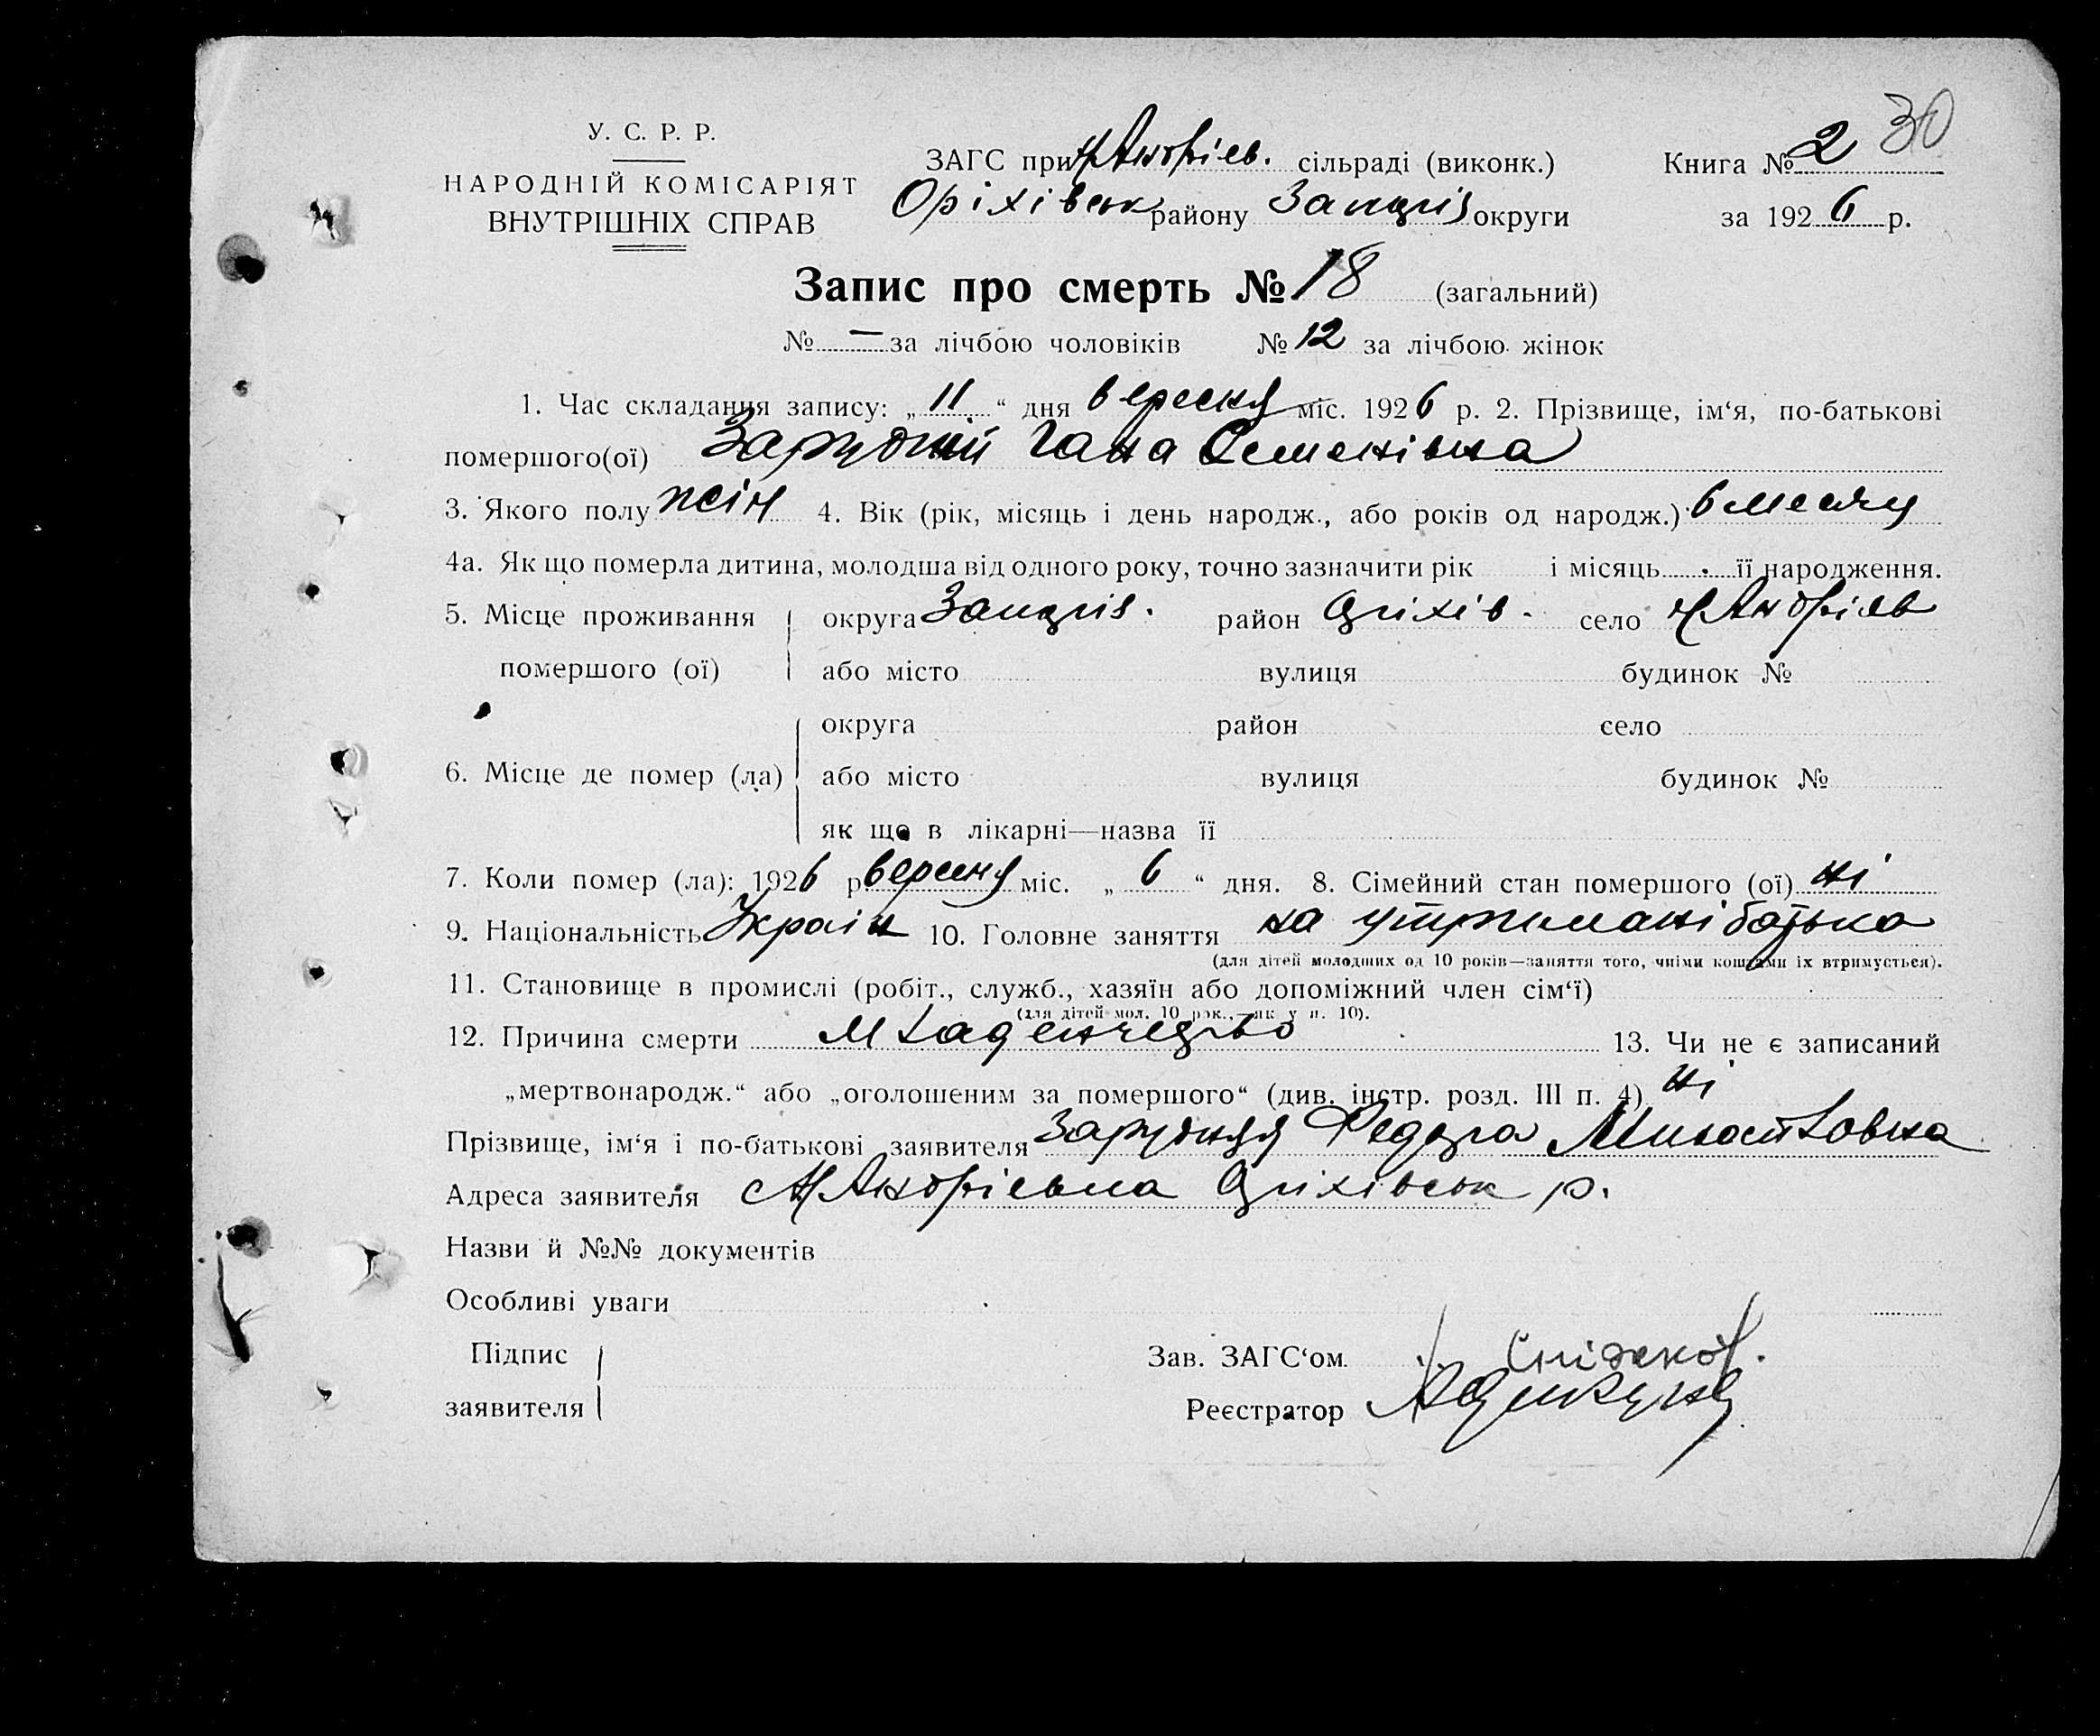 30
У. С. Р. Р.
НАРОДНІЙ КОМІСАРІЯТ
ВНУТРІШНІХ СПРАВ
ЗАГС при Н Андріев. сільраді (виконк.)
Оріхівськ району Запоріз округи
Книга № 2
за 1926 р.
Запис про смерть № 18 (загальний)
№ — за лічбою чоловіків № 12 за лічбою жінок
1. Час складання запису: „11“ дня вересня міс. 1926 р. 2. Прізвище, ім‘я, по-батькові
помершого(ої) Зарудній Гана Семенівна
3. Якого полу жін 4. Вік (рік, місяць і день народж., або років од народж.) 6 месяц
4а. Як що померла дитина, молодша від одного року, точно зазначити рік і місяць її народження.
5. Місце проживання помершого (ої) округа Запоріз. район Оріхів. село Н Андріев
або місто вулиця будинок №
6. Місце де помер (ла) округа район село
або місто вулиця будинок №
як що в лікарні—назва її
7. Коли помер (ла): 1926 р вересня міс. „6“ дня. 8. Сімейний стан помершого (ої) ні
9. Національність Україн 10. Головне заняття на утримані батька
(для дітей молодших од 10 років—заняття того, чиїми коштами їх втримується).
11. Становище в промислі (робіт., служб., хазяїн або допоміжний член сім‘ї)
(для дітей мол. 10 рок.,—як у п. 10).
12. Причина смерти младенчество 13. Чи не є записаний
„мертвонародж.“ або „оголошеним за помершого“ (див. інстр. розд. III п. 4) ні
Прізвище, ім‘я і по-батькові заявителя Зарудняя Федора
Адреса заявителя с Н Андріевка Оріхівськ р.
Назви й №№ документів
Особливі уваги
Підпис заявителя
Зав. ЗАГС‘ом.
Реєстратор